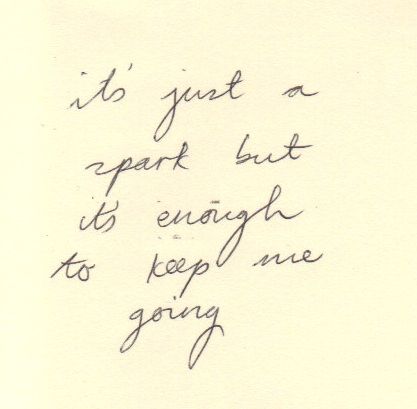 it's just a
spark but
it's enough
to keep me
going